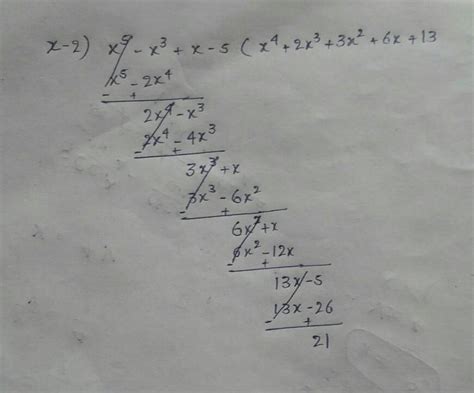 x-2) x⁵ - x³ + x - 5 ( x⁴ + 2x³ + 3x² + 6x + 13
x⁵ - 2x⁴
- +
2x⁴ - x³
2x⁴ - 4x³
- +
3x³ + x
3x³ - 6x²
- +
6x² + x
6x² - 12x
- +
13x - 5
13x - 26
- +
21